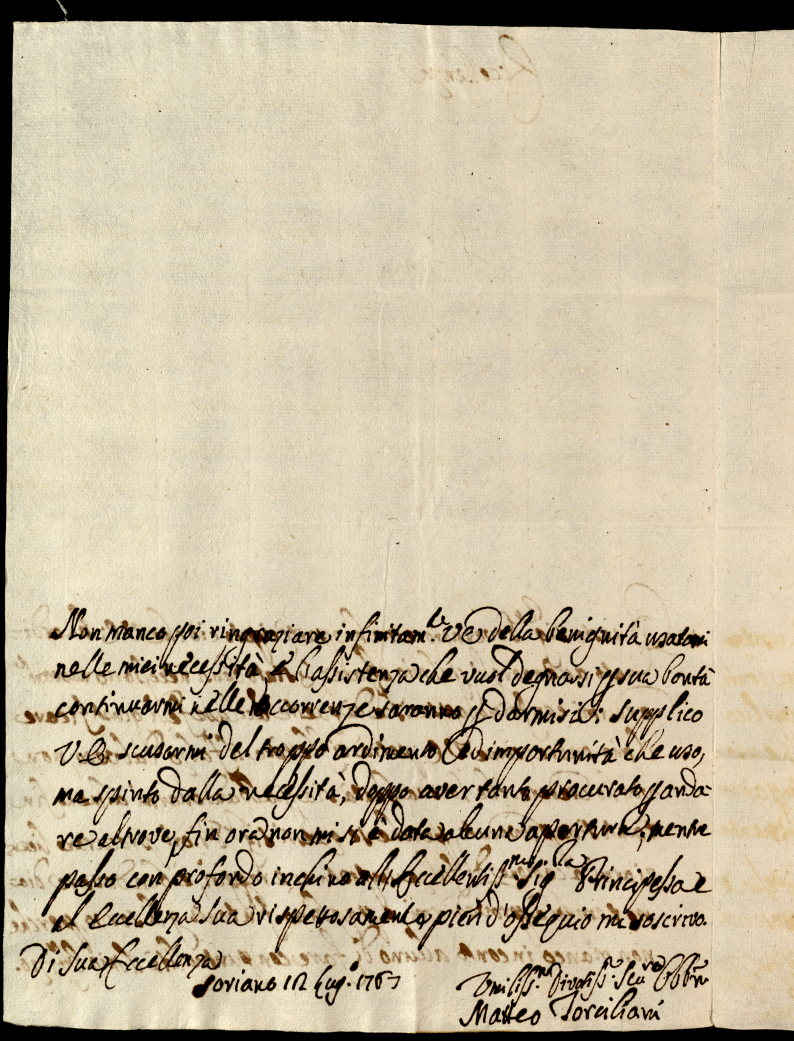 Non manco poi ringraziare infinitam.te V E della benignità usatami
nelle miei necessità, e l'assistenza che vuol degnarsi p sua bontà
continuarmi nelle occorrenze saranno p darmisi: supplico
V. E. scusarmi del troppo ardimento ed importunità che uso,
ma spinto dalla necessità, doppo aver tanto procurato p anda-
re altrove, fin ora non mi si è data alcuna apertura, mentre
passo con profondo inchino all' Eccellentiss.ma Sig.ra Principessa e
al Eccellenza Sua rispettosamente pien d'ossequio mi soscrivo.
Di Sua Eccellenza
Soriano 12 Lug.o 1767
Umiliss.mo Divotiss.mo Ser.re Obb.mo
Matteo Torciliani